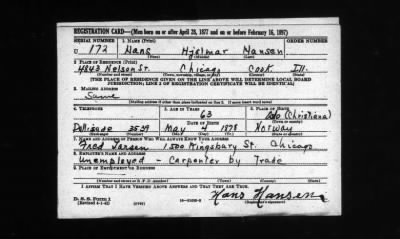 REGISTRATION CARD—(Men born on or after April 28, 1877 and on or before February 16, 1897)
SERIAL NUMBER 1. NAME (Print)
U 172 Hans Hjelmar Hansen
(First) (Middle) (Last)
2. PLACE OF RESIDENCE (Print)
4843 Nelson St. Chicago Cook Ill.
(Number and street) (Town, township, village, or city) (County) (State)
[THE PLACE OF RESIDENCE GIVEN ON THE LINE ABOVE WILL DETERMINE LOCAL BOARD
JURISDICTION; LINE 2 OF REGISTRATION CERTIFICATE WILL BE IDENTICAL]
3. MAILING ADDRESS
Same
[Mailing address if other than place indicated on line 2. If same insert word same]
4. TELEPHONE 5. AGE IN YEARS 6. PLACE OF BIRTH
63 (Christiana)
DATE OF BIRTH
3539 May 4 1878 Norway
7. NAME AND ADDRESS OF PERSON WHO WILL ALWAYS KNOW YOUR ADDRESS
Fred Jansen 1500 Kingsbury St. Chicago
8. EMPLOYER'S NAME AND ADDRESS
Unemployed - Carpenter by Trade
9. PLACE OF EMPLOYMENT OR BUSINESS
(Number and street or R. F. D. number) (Town) (County) (State)
I AFFIRM THAT I HAVE VERIFIED ABOVE ANSWERS AND THAT THEY ARE TRUE.
D. S. S. Form 1
(Revised 4-1-42) (over)
Hans Hansen